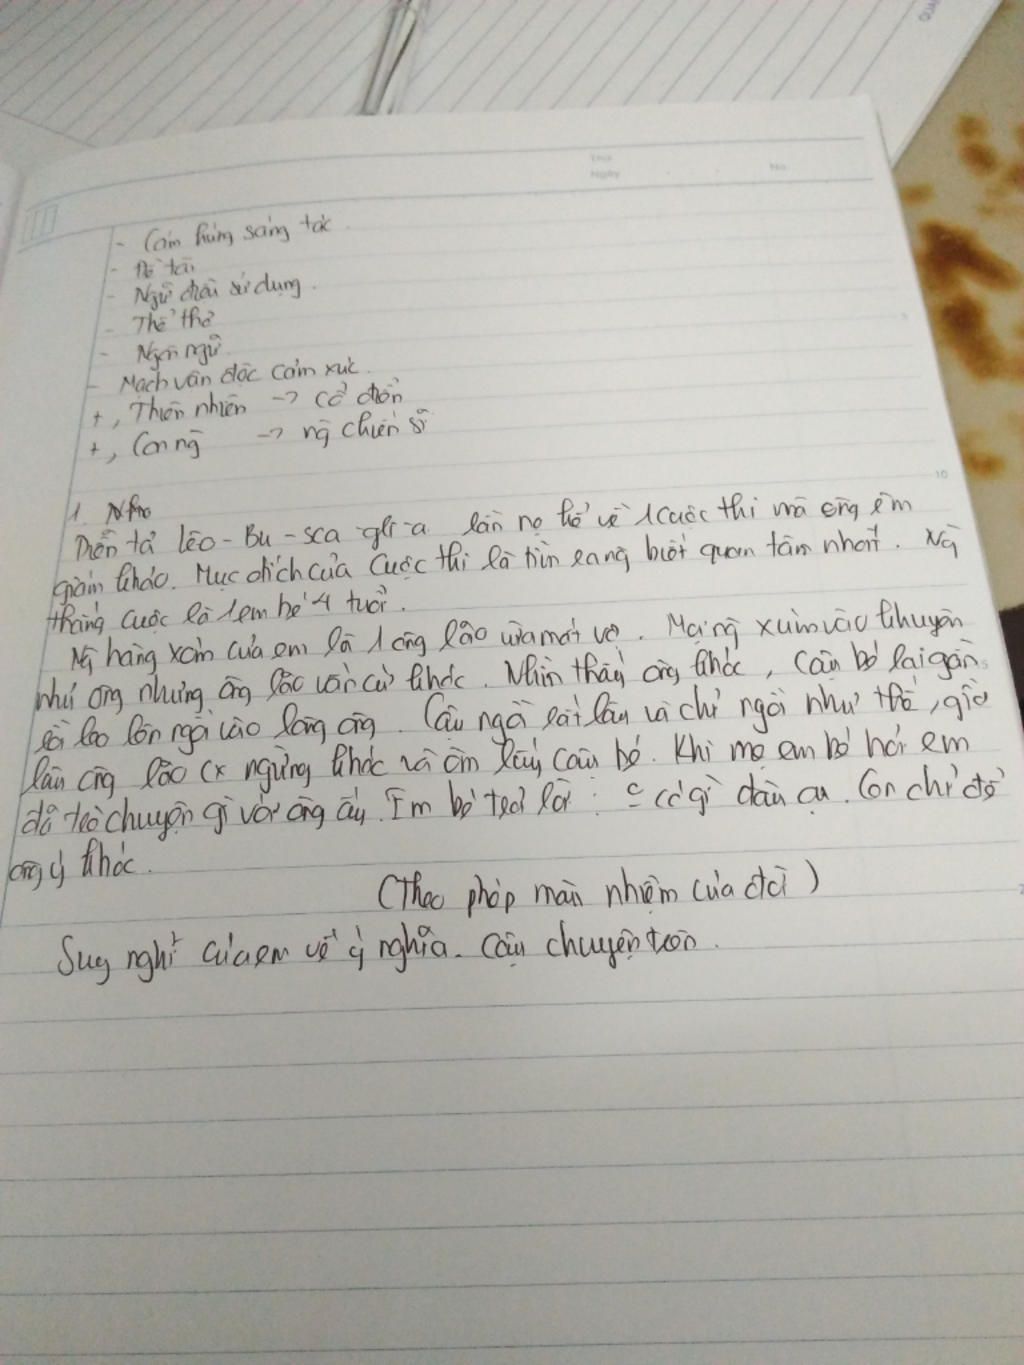 Thứ
Ngày
No
- Cảm hứng sáng tác
- Đề tài
- Ngữ điệu sử dụng.
- Thể thơ
- Ngôn ngữ
- Mạch vận độc cảm xúc.
+, Thiên nhiên -> cổ điển
+, Con ng -> ng chiến sĩ
1.
Diễn tả lêo-Bu-sca-gli-a lần nọ kể về 1 cuộc thi mà ông làm
giám khảo. Mục đích của cuộc thi là tìm ra ng biết quan tâm nhất. Ng
thắng cuộc là 1 em bé 4 tuổi.
Ng hàng xóm của em là 1 ông lão vừa mất vợ. Mọi ng xúm vào khuyên
nhủ ông nhưng ông lão vẫn cứ khóc. Nhìn thấy ông khóc, cậu bé lại gần
rồi leo lên ngồi vào lòng ông. Cậu ngồi rất lâu và chỉ ngồi như thế,
lâu ông lão cx ngừng khóc và ôm lấy cậu bé. Khi mẹ em bé hỏi em
đã trò chuyện gì với ông ấy. Em bé trả lời: có gì đâu ạ. Con chỉ để
ông ý khóc.
(Theo phép màu nhiệm của đời)
Suy nghĩ của em về ý nghĩa câu chuyện trên.